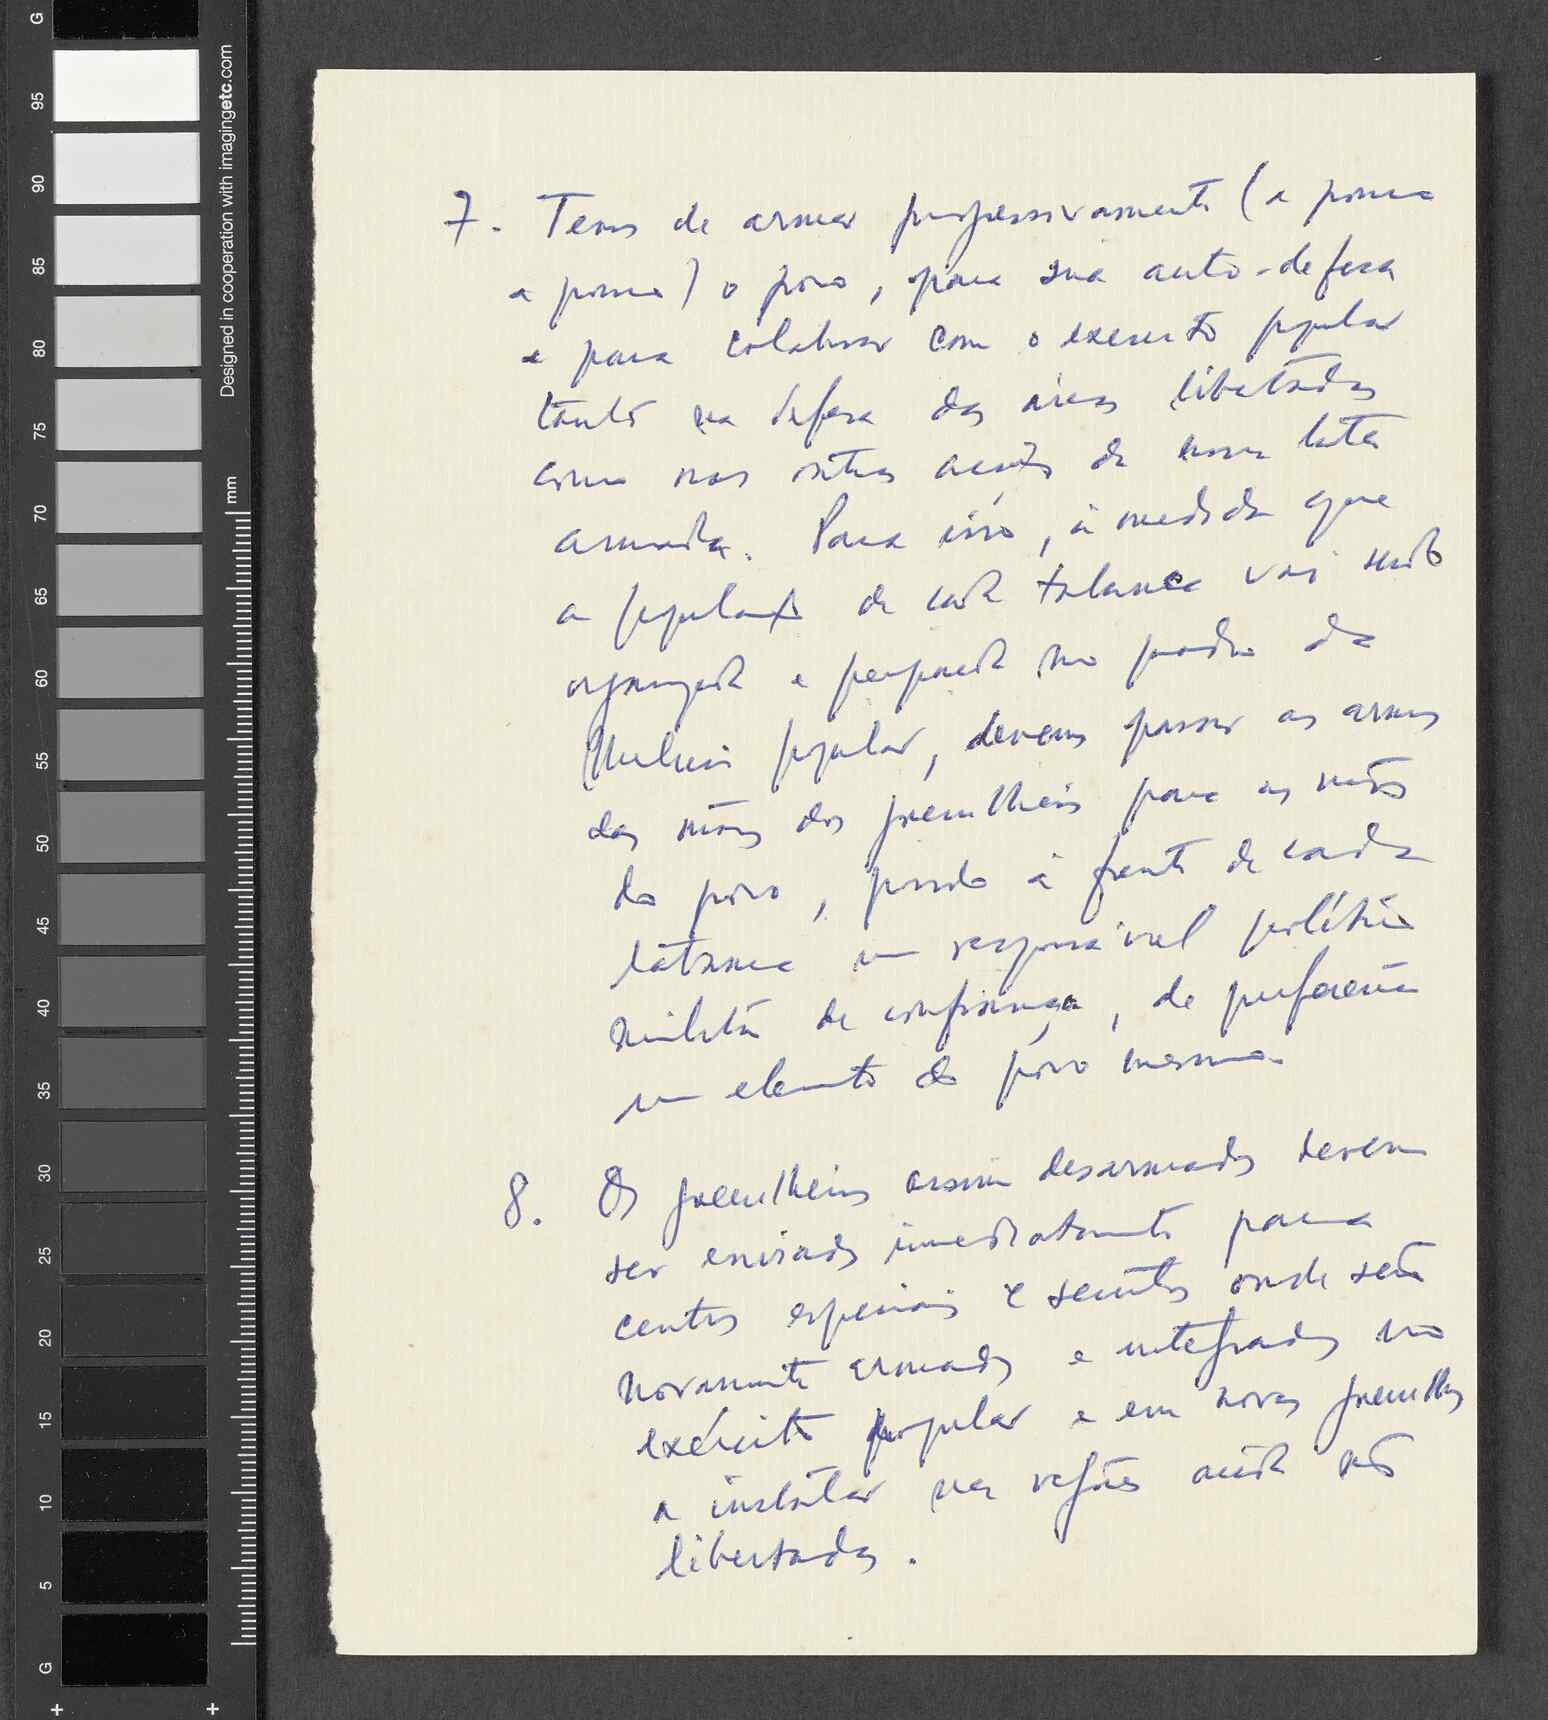 7. Temos de armar progressivamente (a pouco
a pouco) o povo, para sua auto-defesa
e para colaborar com o exercito popular
tanto na defesa das áreas libertadas
como nas outras acções da nossa luta
armada. Para isso, à medida que
a população de cada tabanca vai sendo
organizada e preparada no quadro da
Milícia popular, devemos passar as armas
das mãos dos guerrilheiros para as mãos
do povo, pondo à frente de cada
tabanca um responsável político
militar de confiança, de preferência
um elemento do povo mesmo.
8. Os guerrilheiros assim desarmados devem
ser enviados imediatamente para
centros especiais e secretos onde serão
novamente armados e integrados no
exército popular e em novas guerrilhas
a instalar nas regiões ainda não
libertadas.
G
95
90
85
80
75
70
65
60
55
50
45
40
35
30
25
20
15
10
5
G
Designed in cooperation with imagingetc.com
mm